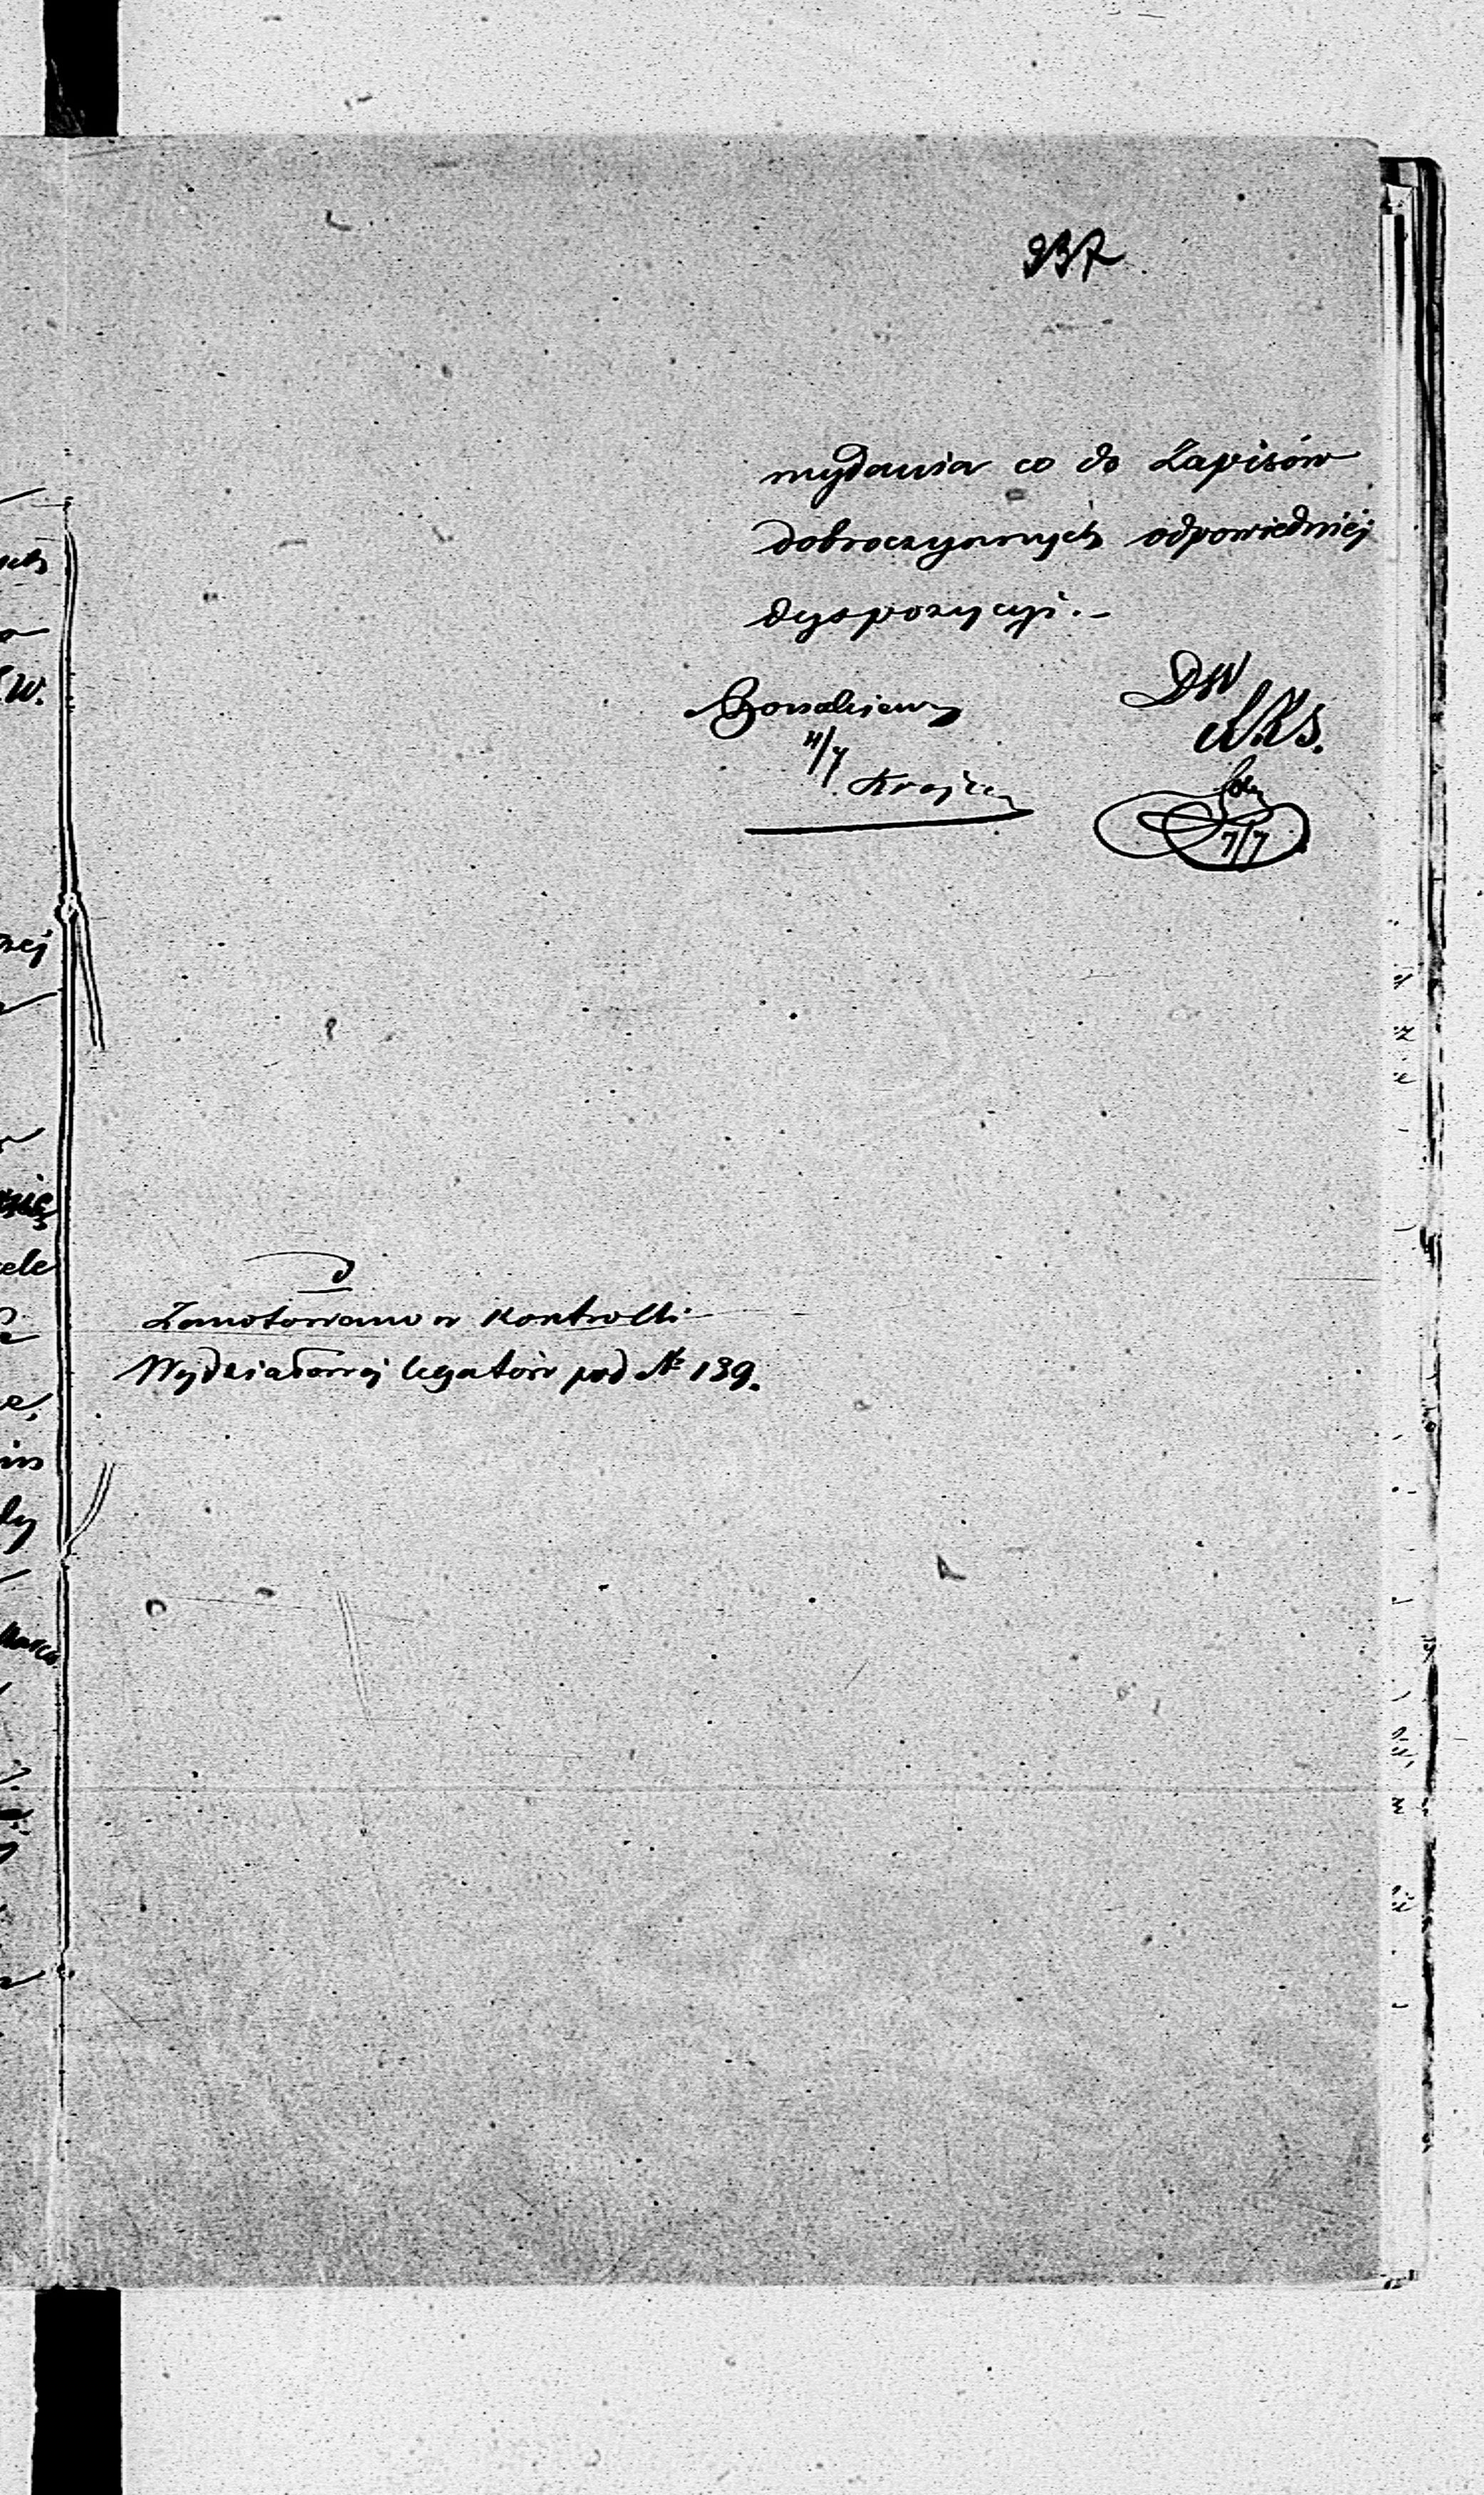 937
wydania co do Zapisów
dobroczynnych odpowiedniej
dyspozycyi.-
DW
4/7
7/7
Zanotowano w Kontrolli
Wydziałowej legatów pod № 139.